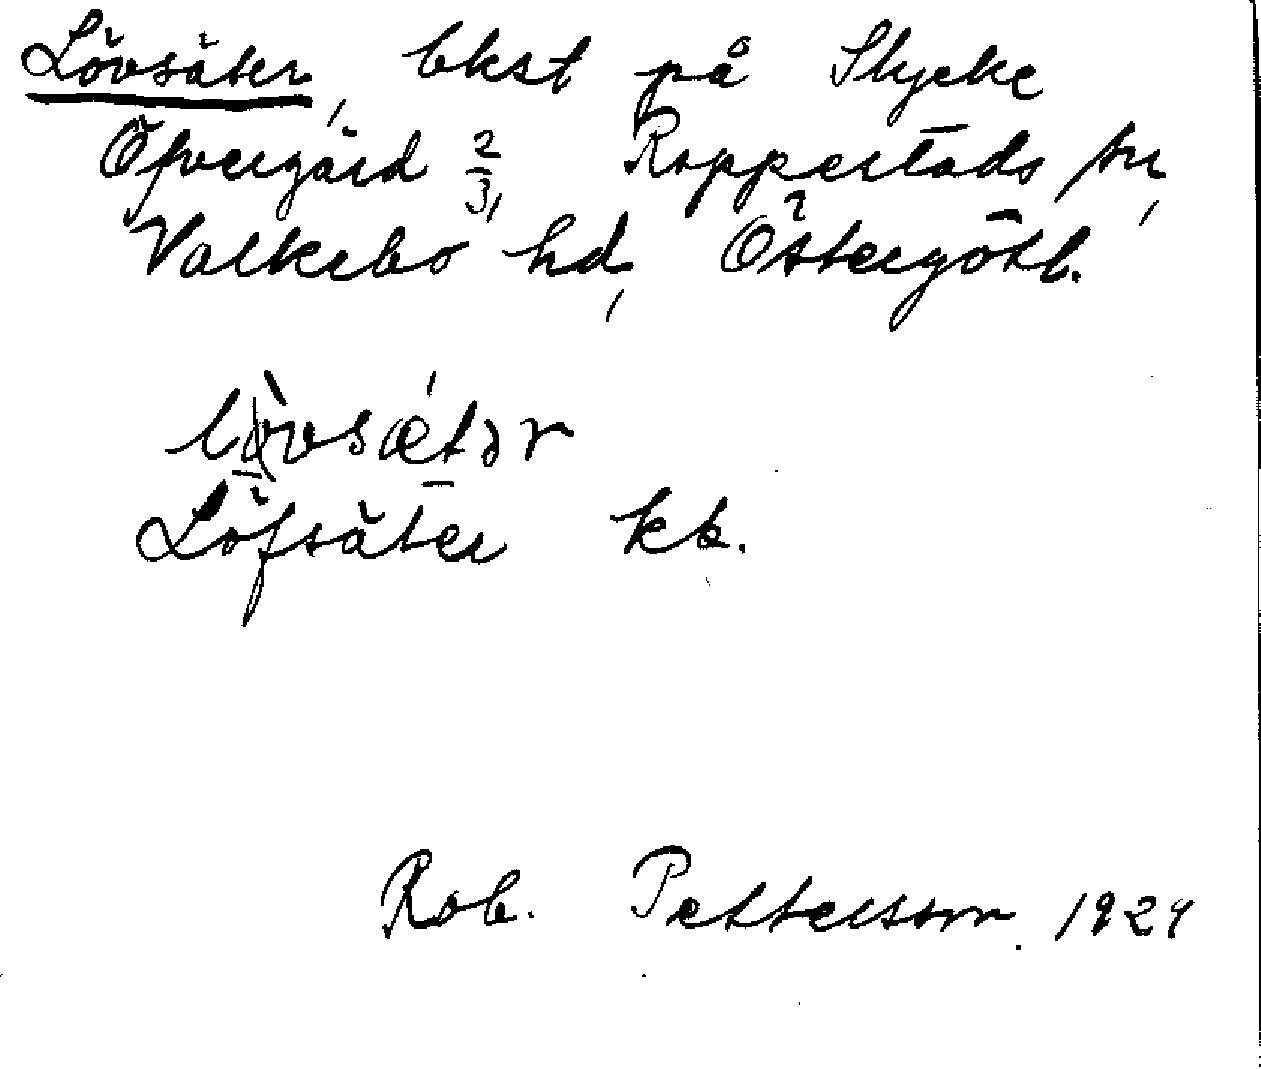 Lövsäter, bkst på Stycke
Öfvergård 2/3, Rappestads sn,
Valkebo hd, Östergötl.
lòvsætər
Löfsäter kb.
Rob. Pettersson. 1924